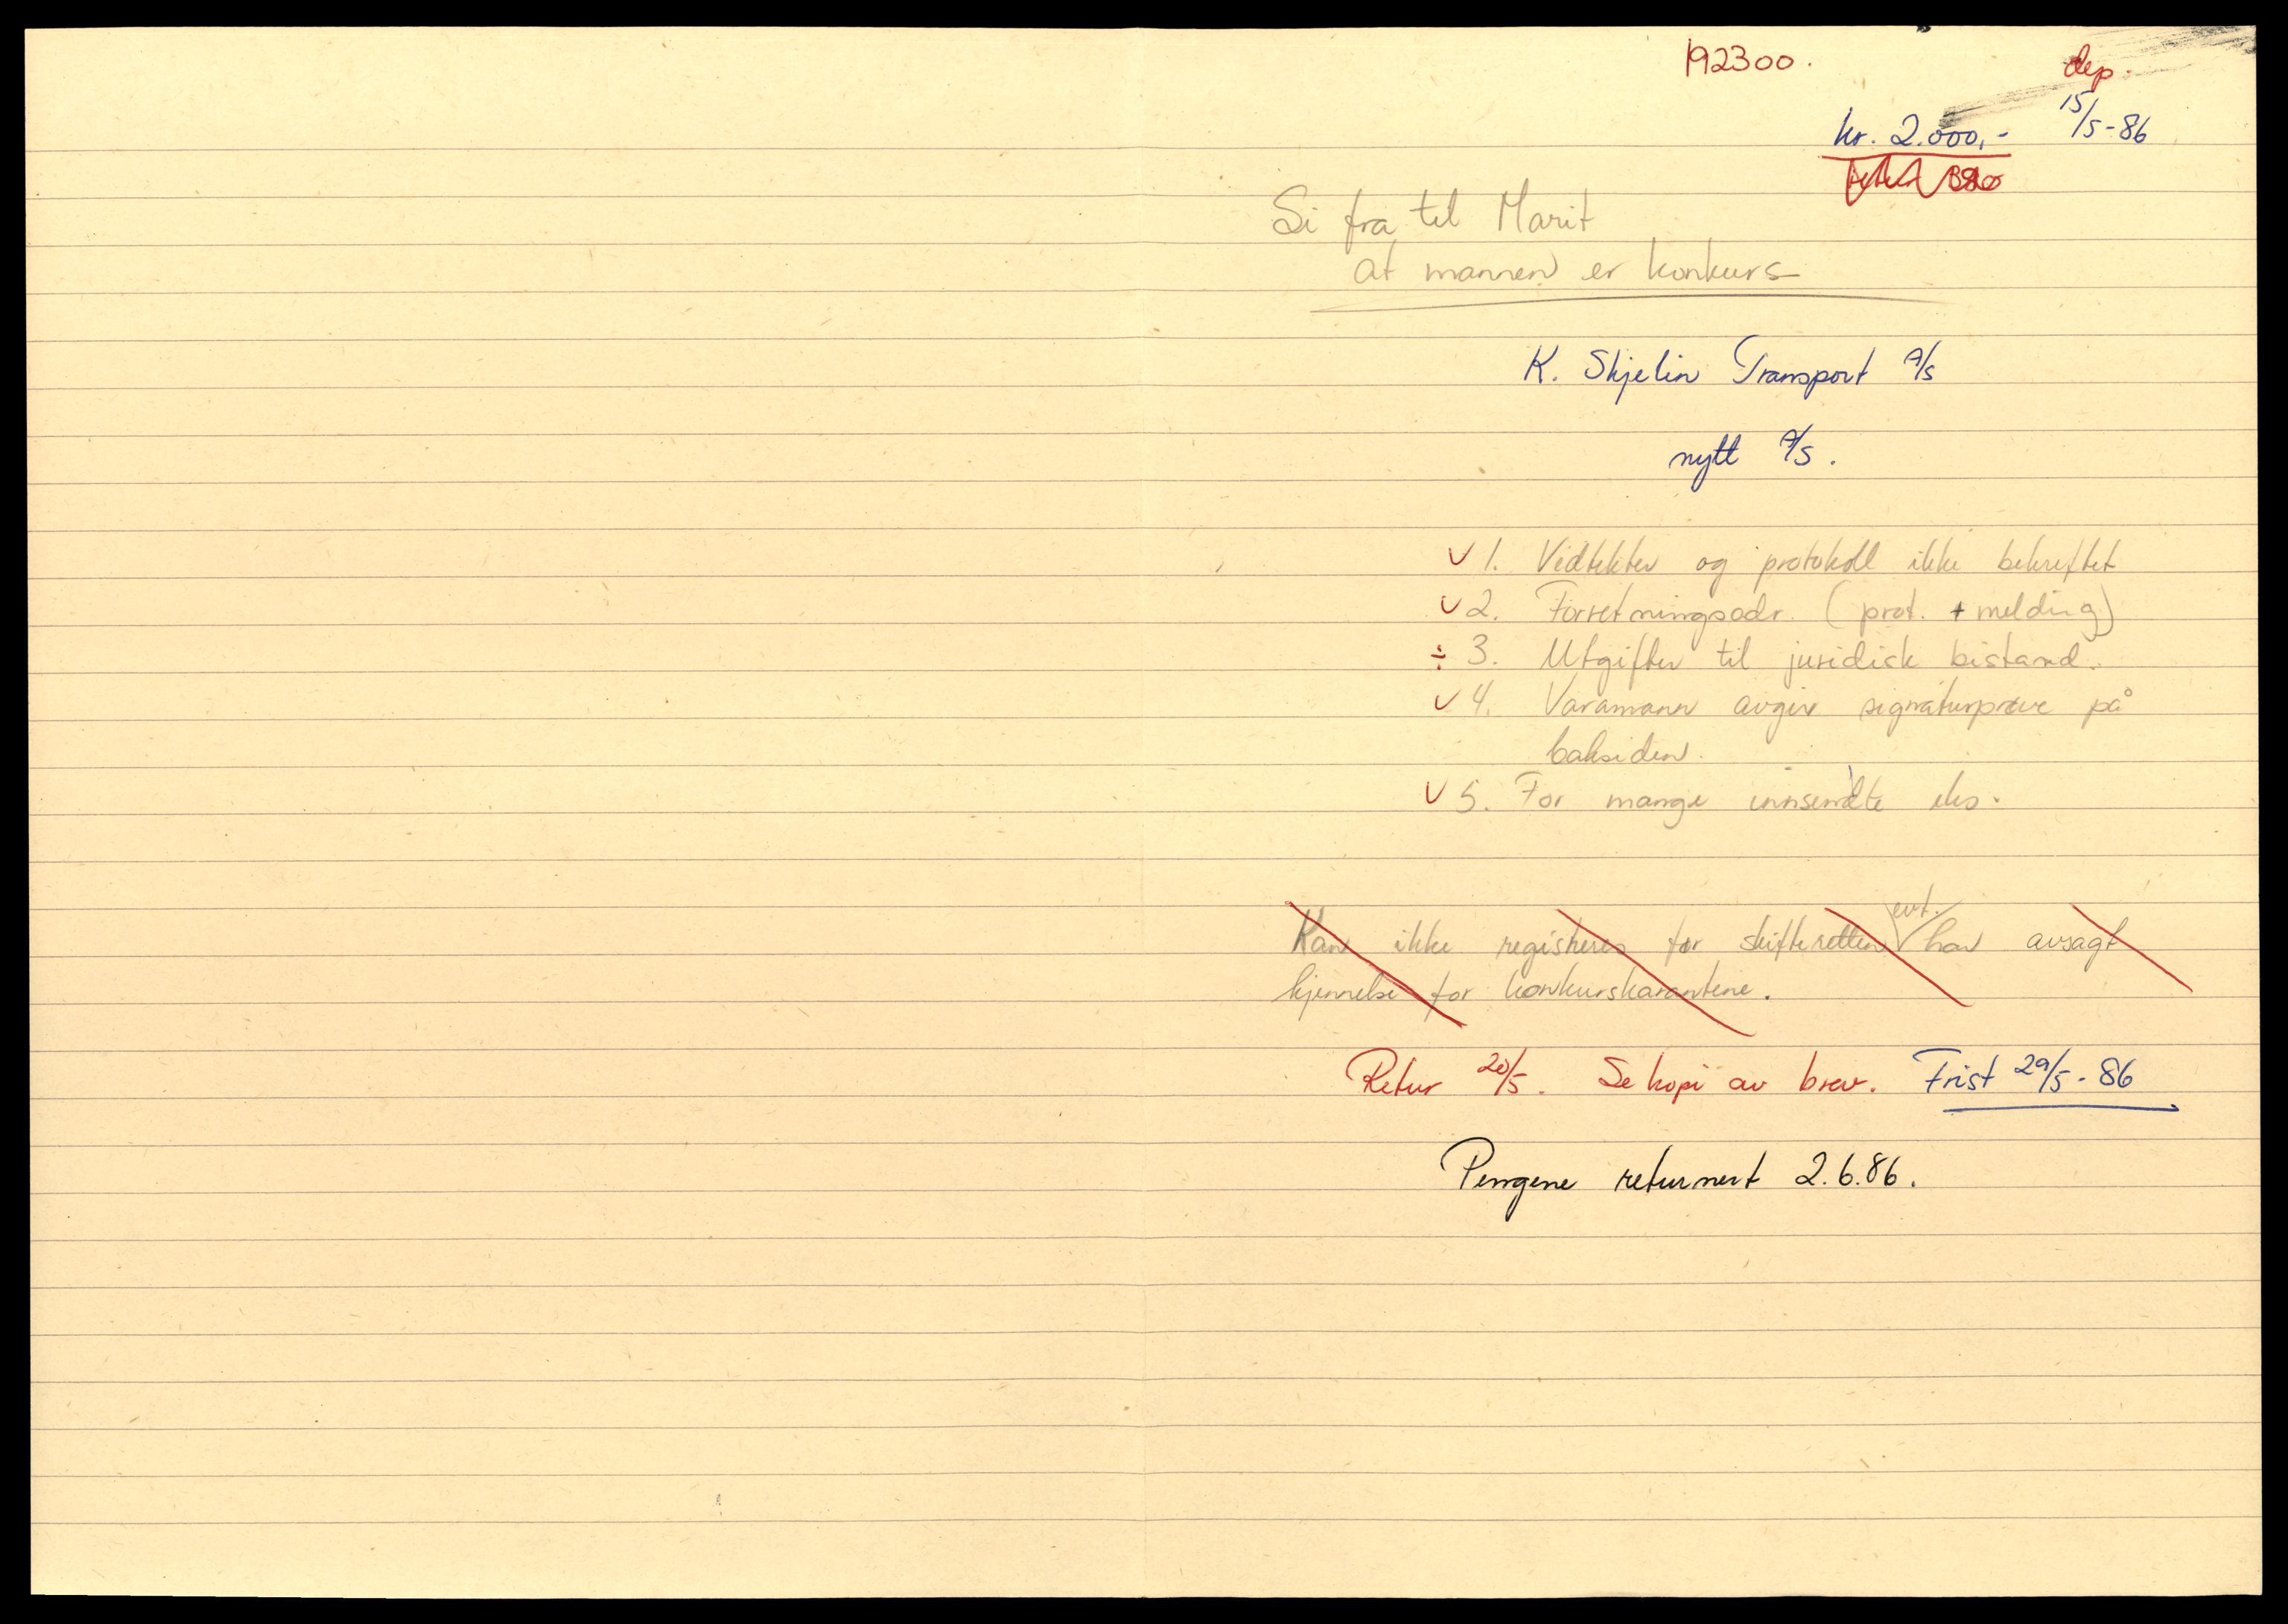 192300.
dep.
kr. 2.000,- 15/5-86
Si fra til Marit
at mannen er konkurs
K. Skjelin Transport A/S
nytt A/S.
v 1. Vedtekter og protokoll ikke bekreftet
v 2. Forretningsadr. (prot. + melding)
÷ 3. Utgifter til juridisk bistand.
v 4. Varamann avgir signaturprøve på
baksiden.
v 5. For mange innsendte eks.
evt.
Kan ikke registreres før skifteretten har avsagt
kjennelse for konkurskarantene.
Retur 20/5. Se kopi av brev. Frist 29/5-86
Pengene returnert 2.6.86.